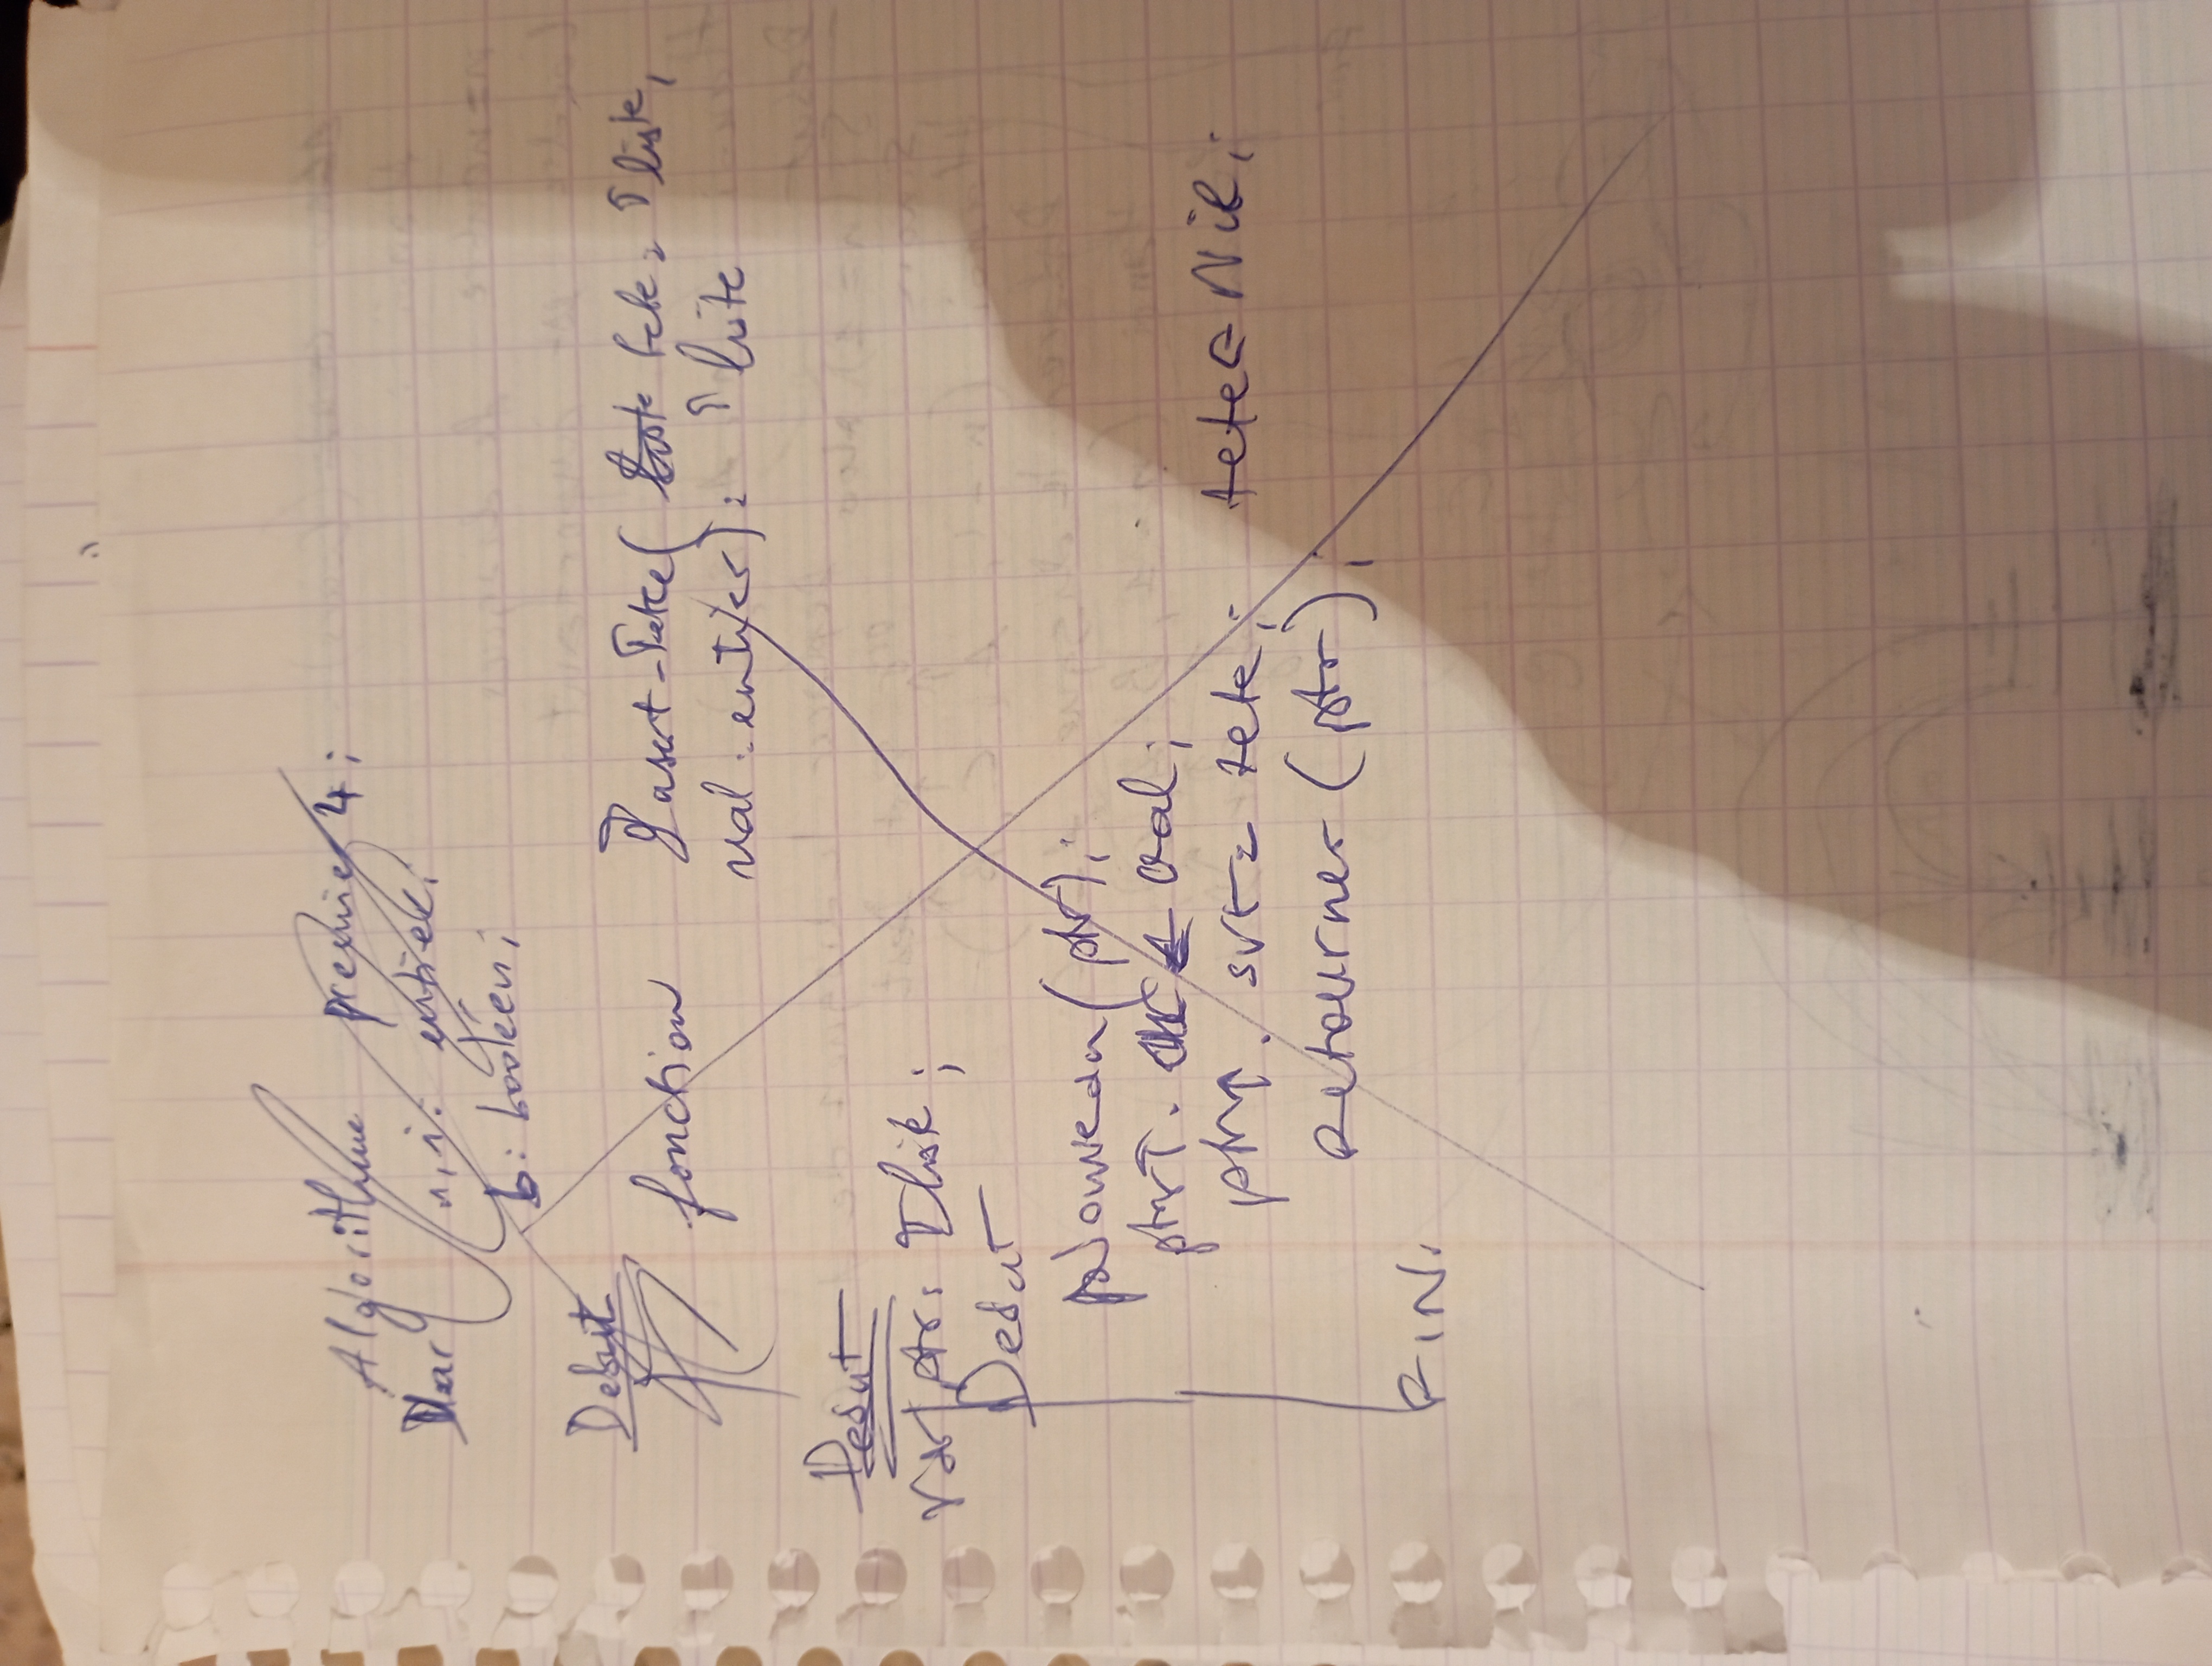 Algorithme premier 4;
Var n, i: entier;
b: booléen;
Debut
fonction Insert-Tete( tete: ↑liste,
val: entier): ↑liste
Debut
Var ptr: ↑liste;
Debut
Nouveau(ptr);
ptr↑. ← val;
ptr↑. svt= tete; tete= Nil;
Retourner (ptr);
FIN.